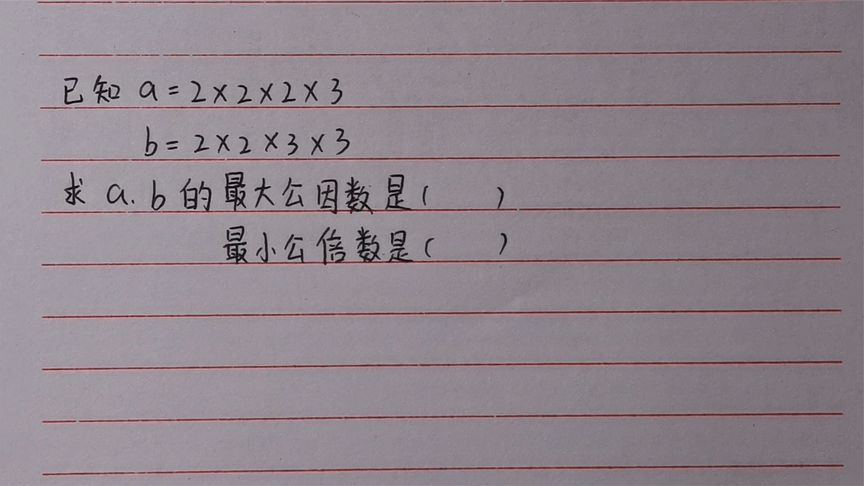 已知 a=2×2×2×3
b=2×2×3×3
求 a.b的最大公因数是( )
最小公倍数是( )